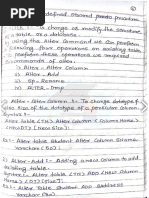 defined stored procedure
to change or modify the structure
table in a database
using the Alter command we can perform
following four operations on existing table
four operations as required
commands of alter:
i) Alter - Alter Column
ii) Alter - Add
iii) Sp - Rename
iv) Alter - Drop
i) Alter - Alter Column :- To change datatype &
size of the datatype of a particular column
Syntax :-
Alter table <TN> Alter Column < Column Name >
<DT> [New Size]
Alter table Student Alter Column
Varchar
ii) Alter - Add :- Adding a new column to add
existing table.
Syntax :- Alter table <TN> ADD < Column Name
> <DT> [Size]
Ex:- Alter table Student Add Address
Varchar